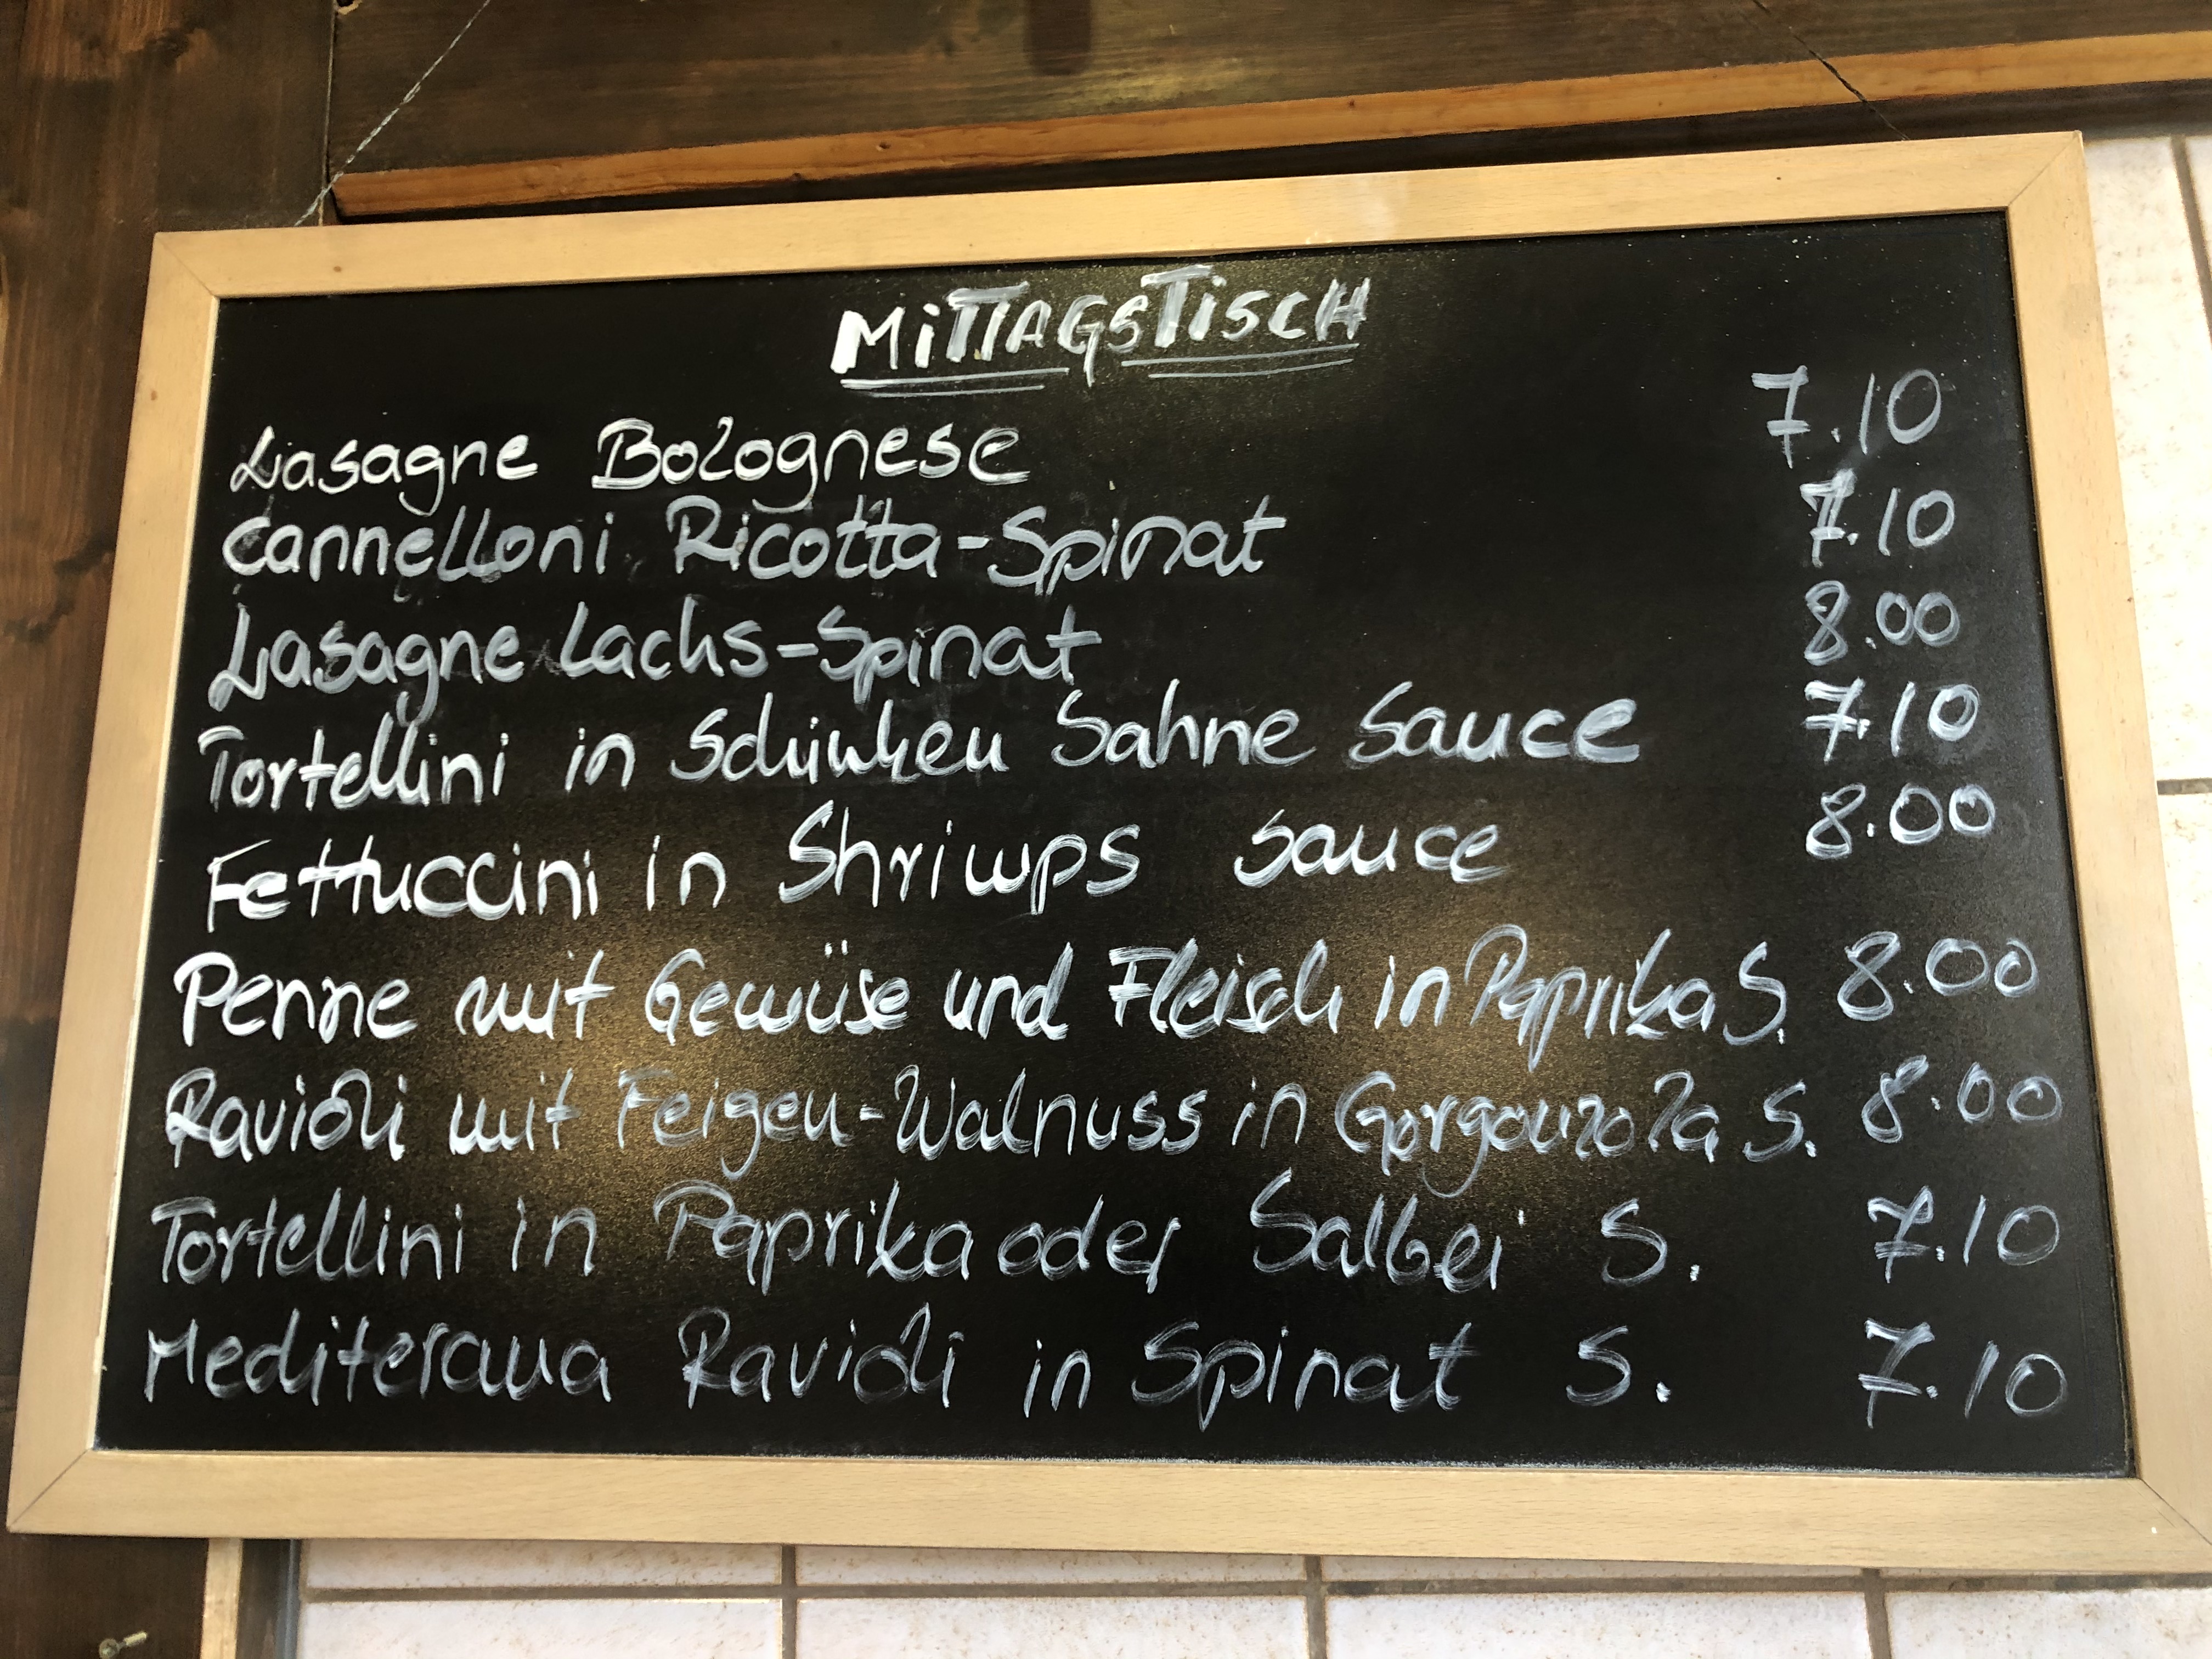 MiTTAGSTiSCH
Lasagne Bolognese 7.10
Cannelloni Ricotta-Spinat 7.10
Lasagne Lachs-Spinat 8.00
Tortellini in Schinken Sahne Sauce 7.10
Fettuccini in Shrimps Sauce 8.00
Penne mit Gewüse und Fleisch in Paprika S. 8.00
Ravioli mit Feigen-Walnuss in Gorgonzola S. 8.00
Tortellini in Paprika oder Salbei S. 7.10
Mediterana Ravioli in Spinat S. 7.10